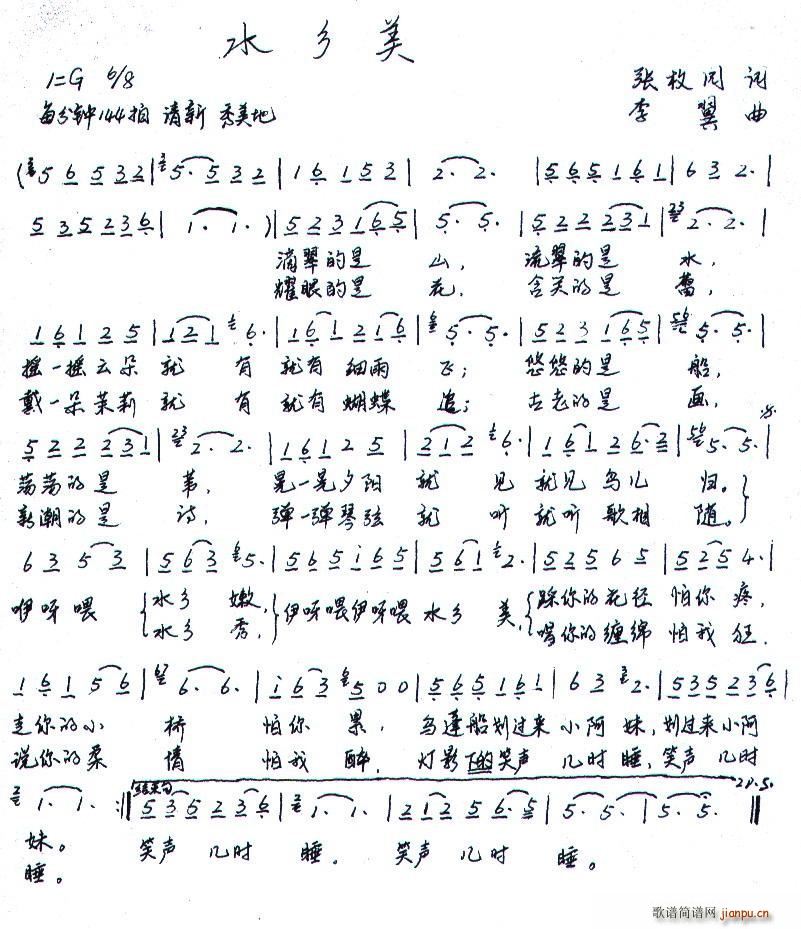 水乡美
1=G 6/8
张枚同 词
每分钟144拍 清新 秀美地
李翼 曲
(5 6 5 3 2 | 5. 5 3 2 | 1 6 1 5 3 | 2. 2. | 5 6 5 1 6 1 | 6 3 2. |
5 3 5 2 3 6 | 1. 1. ) | 5 2 3 1 6 5 | 5. 5. | 5 2 2 2 3 1 | 2. 2. |
滴翠的是 山, 流翠的是 水,
耀眼的是 花, 含笑的是 蕾,
1 6 1 2 5 | 1 2 1 6. | 1 6 1 2 1 6 | 5. 5. | 5 2 3 1 6 5 | 5. 5. |
摇一摇云朵 就 有 就有细雨 飞; 悠悠的是 船,
戴一朵茉莉 就 有 就有蝴蝶 追; 古老的是 画,
5 2 2 2 3 1 | 2. 2. | 1 6 1 2 5 | 2 1 2 6. | 1 6 1 2 6 2 | 5. 5. |
荡荡的是 苇, 晃一晃夕阳 就 见 就见鸟儿 归。
新潮的是 诗, 弹一弹琴弦 就 听 就听歌相 随。
6 3 5 3 | 5 6 3 5. | 5 6 5 i 6 5 | 5 6 1 2. | 5 2 5 6 5 | 5 2 5 4. |
咿呀喂 水乡 嫩, 伊呀喂伊呀喂 水乡 美, 踩你的花径 怕你 疼,
水乡 秀, 唱你的缠绵 怕我 狂.
1 6 1 5 6 | 6. 6. | i 6 3 5 0 0 | 5 6 5 1 6 1 | 6 3 2. | 5 3 5 2 3 6 |
走你的小 桥 怕你 累, 乌蓬船划过来 小阿 妹, 划过来小阿
说你的柔 情 怕我 醉, 灯影下的笑声 几时 睡, 笑声 几时
1. 1. :‖ 结束句 5 3 5 2 3 6 | 1. 1. | 2 1 2 5 6. 5 | 5. 5. | 5. 5. ‖
妹。 笑声 几时 睡. 笑声 几时 睡。
睡。
歌谱简谱网
jianpu.cn